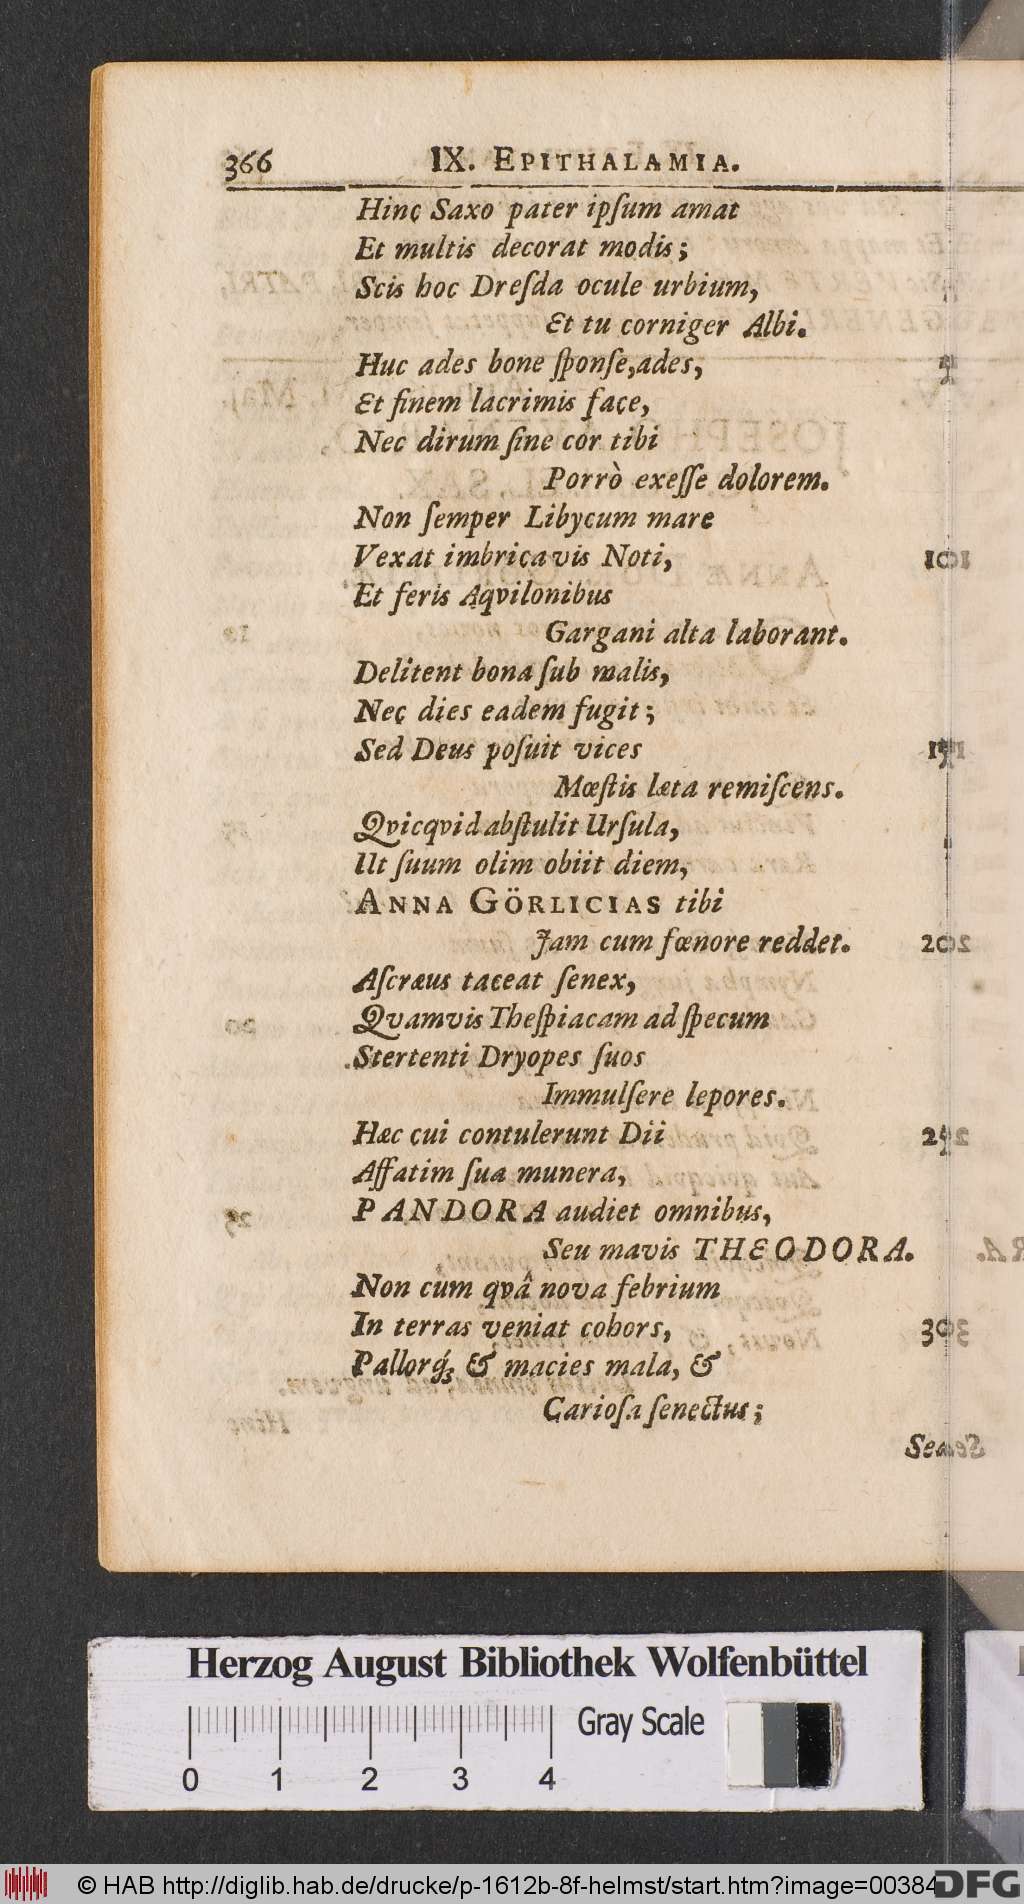 366 IX. EPITHALAMIA.
Hinc Saxo pater ipſum amat
Et multis decorat modis;
Scis hoc Dreſda ocule urbium,
Et tu corniger Albi.
Huc ades bone ſponſe, ades,
Et finem lacrimis face,
Nec dirum ſine cor tibi
Porrò exeſſe dolorem.
Non ſemper Libycum mare
Vexat imbrica vis Noti,
Et feris Aqvilonibus
Gargani alta laborant.
Delitent bona ſub malis,
Nec dies eadem fugit;
Sed Deus poſuit vices
Mœſtis læta remiſcens.
Qvicqvid abſtulit Urſula,
Ut ſuum olim obiit diem,
ANNA GÖRLICIAS tibi
Jam cum fœnore reddet.
Aſcræus taceat ſenex,
Qvamvis Theſpiacam ad ſpecum
Stertenti Dryopes ſuos
Immulſere lepores.
Hæc cui contulerunt Dii
Affatim ſua munera,
PANDORA audiet omnibus,
Seu mavis THEODORA.
Non cum qvâ nova febrium
In terras veniat cohors,
Pallorq́; & macies mala, &
Carioſa ſenectus;
Herzog August Bibliothek Wolfenbüttel
Gray Scale
0 1 2 3 4
© HAB http://diglib.hab.de/drucke/p-1612b-8f-helmst/start.htm?image=00384
DFG